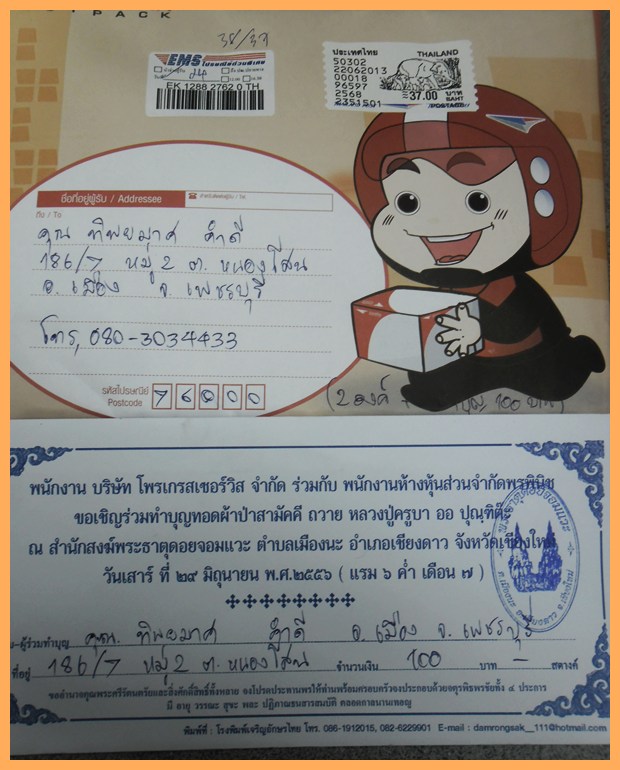 PACK
38/39
EMS
EK 1288 2762 0 TH
ประเทศไทย THAILAND
50302
22062013
00018
96597
2568
2351501
37.00 บาท
BAHT
POSTAGE
ชื่อที่อยู่ผู้รับ / Addressee
ถึง / To
คุณ ทิพยมาศ คำดี
186/7 หมู่ 2 ต. หนองโสน
อ. เมือง จ. เพชรบุรี
โทร, 080-3034433
รหัสไปรษณีย์
Postcode 76000
(2 องค์ 100 บาท)
พนักงาน บริษัท โพรเกรสเซอร์วิส จำกัด ร่วมกับ พนักงานห้างหุ้นส่วนจำกัดพรพินิช
ขอเชิญร่วมทำบุญทอดผ้าป่าสามัคคี ถวาย หลวงปู่ครูบา ออ ปุณฺฑิต๊ะ
ณ สำนักสงฆ์พระธาตุดอยจอมแวะ ตำบลเมืองนะ อำเภอเชียงดาว จังหวัดเชียงใหม่
วันเสาร์ ที่ ๒๙ มิถุนายน พ.ศ.๒๕๕๖ ( แรม ๖ ค่ำ เดือน ๗ )
ผู้ร่วมทำบุญ คุณ ทิพยมาศ คำดี อ. เมือง จ. เพชรบุรี
ที่อยู่ 186/7 หมู่ 2 ต. หนองโสน จำนวนเงิน 100 บาท - สตางค์
ขออำนาจคุณพระศรีรัตนตรัยและสิ่งศักดิ์สิทธิ์ทั้งหลาย จงโปรดประทานพรให้ท่านพร้อมครอบครัวจงประกอบด้วยจตุรพิธพรชัยทั้ง ๔ ประการ
มี อายุ วรรณะ สุขะ พละ ปฏิภาณธนสารสมบัติ ตลอดกาลนานเทอญ
พิมพ์ที่ : โรงพิมพ์เจริญอักษรไทย โทร. 086-1912015, 082-6229901 E-mail : damrongsak_111@hotmail.com